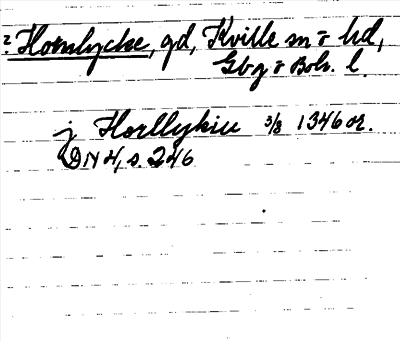 ? Hornlycke, gd, Kville sn o hd,
Gbg o Boh. l.
j Horllykiu 3/8 1346 or.
DN 4, s. 246